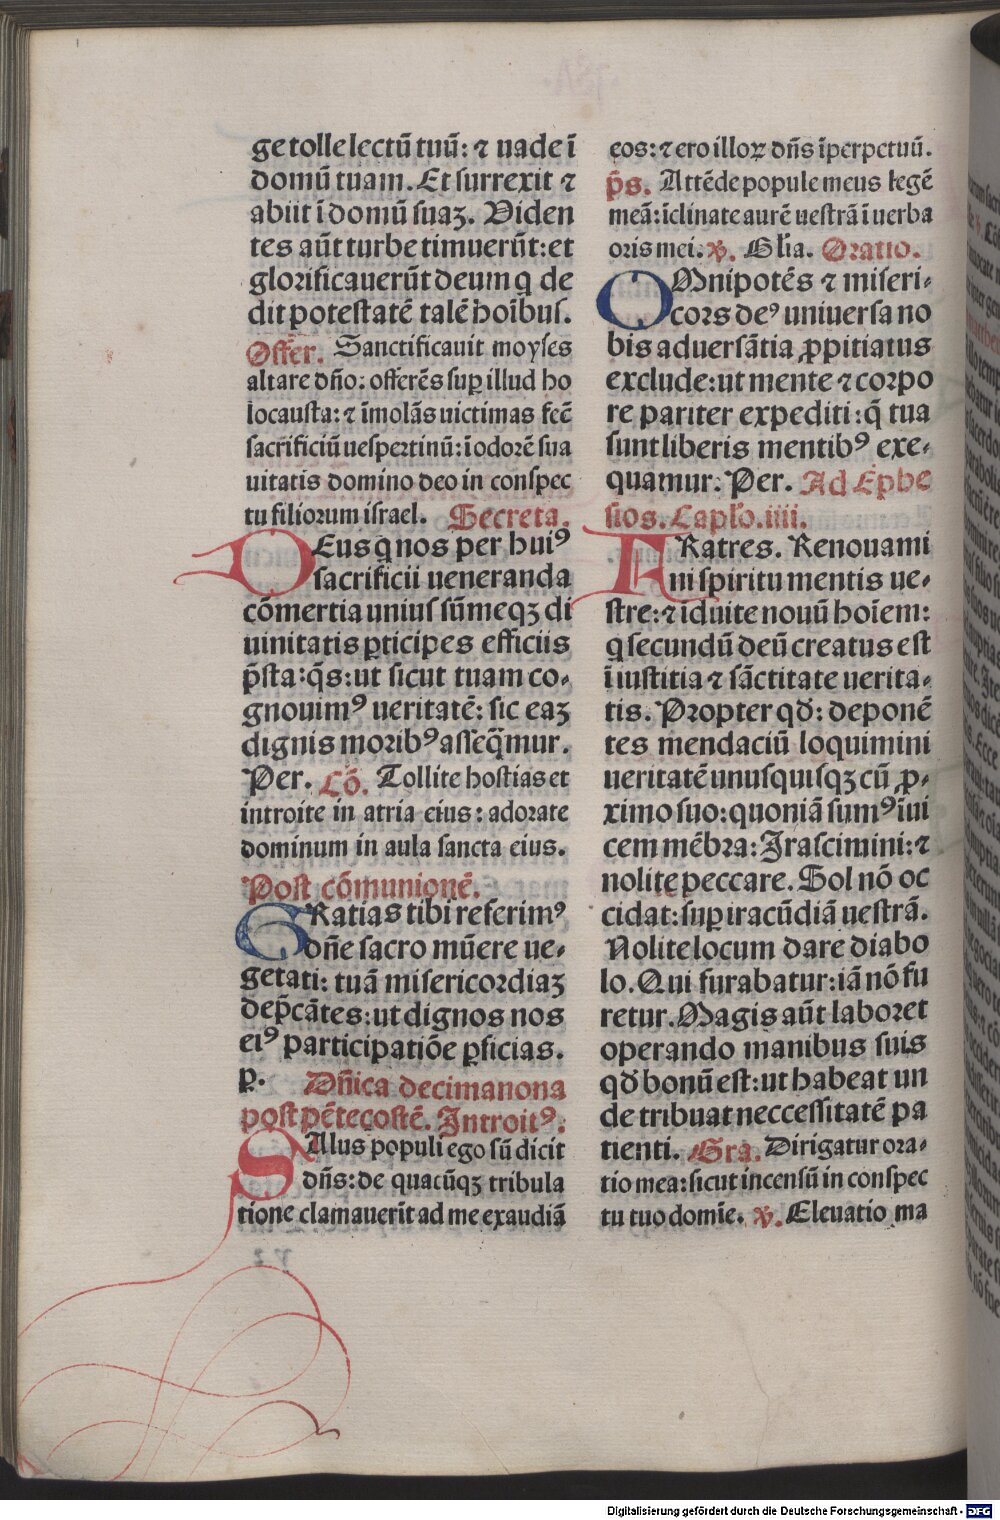 ge tolle lectū tuū: ⁊ uade ī
domū tuam. Et surrexit ⁊
abiit ī domū suaʒ. Viden
tes aūt turbe timuerūt: et
glorificauerūt deum q̄ de
dit ꝑotestatē talē hoībus.
Offer̄. Sanctificauit moyses
altare dn̄o: offerēs suꝑ illud ho
locausta: ⁊ īmolās uictimas fecē
sacrificiū uespertinū: ī odorē sua
uitatis domino deo in conspec
tu filiorum israel. Secreta.
DEus q̄ nos per huiꝰ
sacrificii ueneranda
cōmertia unius sūmeqʒ di
uinitatis ꝑticipes efficiis
p̄sta: q̄s: ut sicut tuam co-
gnouimꝰ ueritatē: sic eaʒ
dignis moribꝰ asseq̄mur.
Per. Cō. Tollite hostias et
introite in atria eius: adorate
dominum in aula sancta eius.
Post cōmunionē.
GRatias tibi referimꝰ
dn̄e sacro mūere ue-
getati: tuā misericordiaʒ
dep̄cātes: ut dignos nos
eiꝰ participatiōe ꝑficias.
ꝑ. Dn̄ica decimanona
post pētecostē. Introitꝰ.
SAlus populi ego sū dicit
dn̄s: de quacūqʒ tribula
tione clamauerīt ad me exaudiā
eos: ⁊ ero illoꝝ dn̄s īperpetuū.
p̄s. Attēde popule meus legē
meā: īclinate aurē uestrā ī uerba
oris mei. ℣. Gl̄ia. Oratio.
OMnipotēs ⁊ miseri-
cors deꝰ uniuersa no
bis aduersātia ꝓpitiatus
exclude: ut mente ⁊ corpo
re pariter expediti: q̄ tua
sunt liberis mentibꝰ exe-
quamur. Per. Ad Ephe
sios. Caplo. iiii.
FRatres. Renouami
ni spiritu mentis ue-
stre: ⁊ īduite nouū hoīem:
q̄ secundū deū creatus est
ī iustitia ⁊ sāctitate uerita-
tis. Propter qđ: deponē
tes mendaciū loquimini
ueritatē unusquisqʒ cū ꝓ-
ximo suo: quoniā sumꝰ īui
cem mēbra: Irascimini: ⁊
nolite peccare. Sol nō oc
cidat: suꝑ iracūdiā uestrā.
Nolite locum dare diabo
lo. Qui furabatur: iā nō fu
retur. Magis aūt laboret
operando manibus suis
qđ bonū est: ut habeat un
de tribuat neccessitatē pa
tienti. Gra. Dirigatur ora-
tio mea: sicut incensū in conspec
tu tuo domīe. ℣. Eleuatio ma
Digitalisierung gefördert durch die Deutsche Forschungsgemeinschaft - DFG